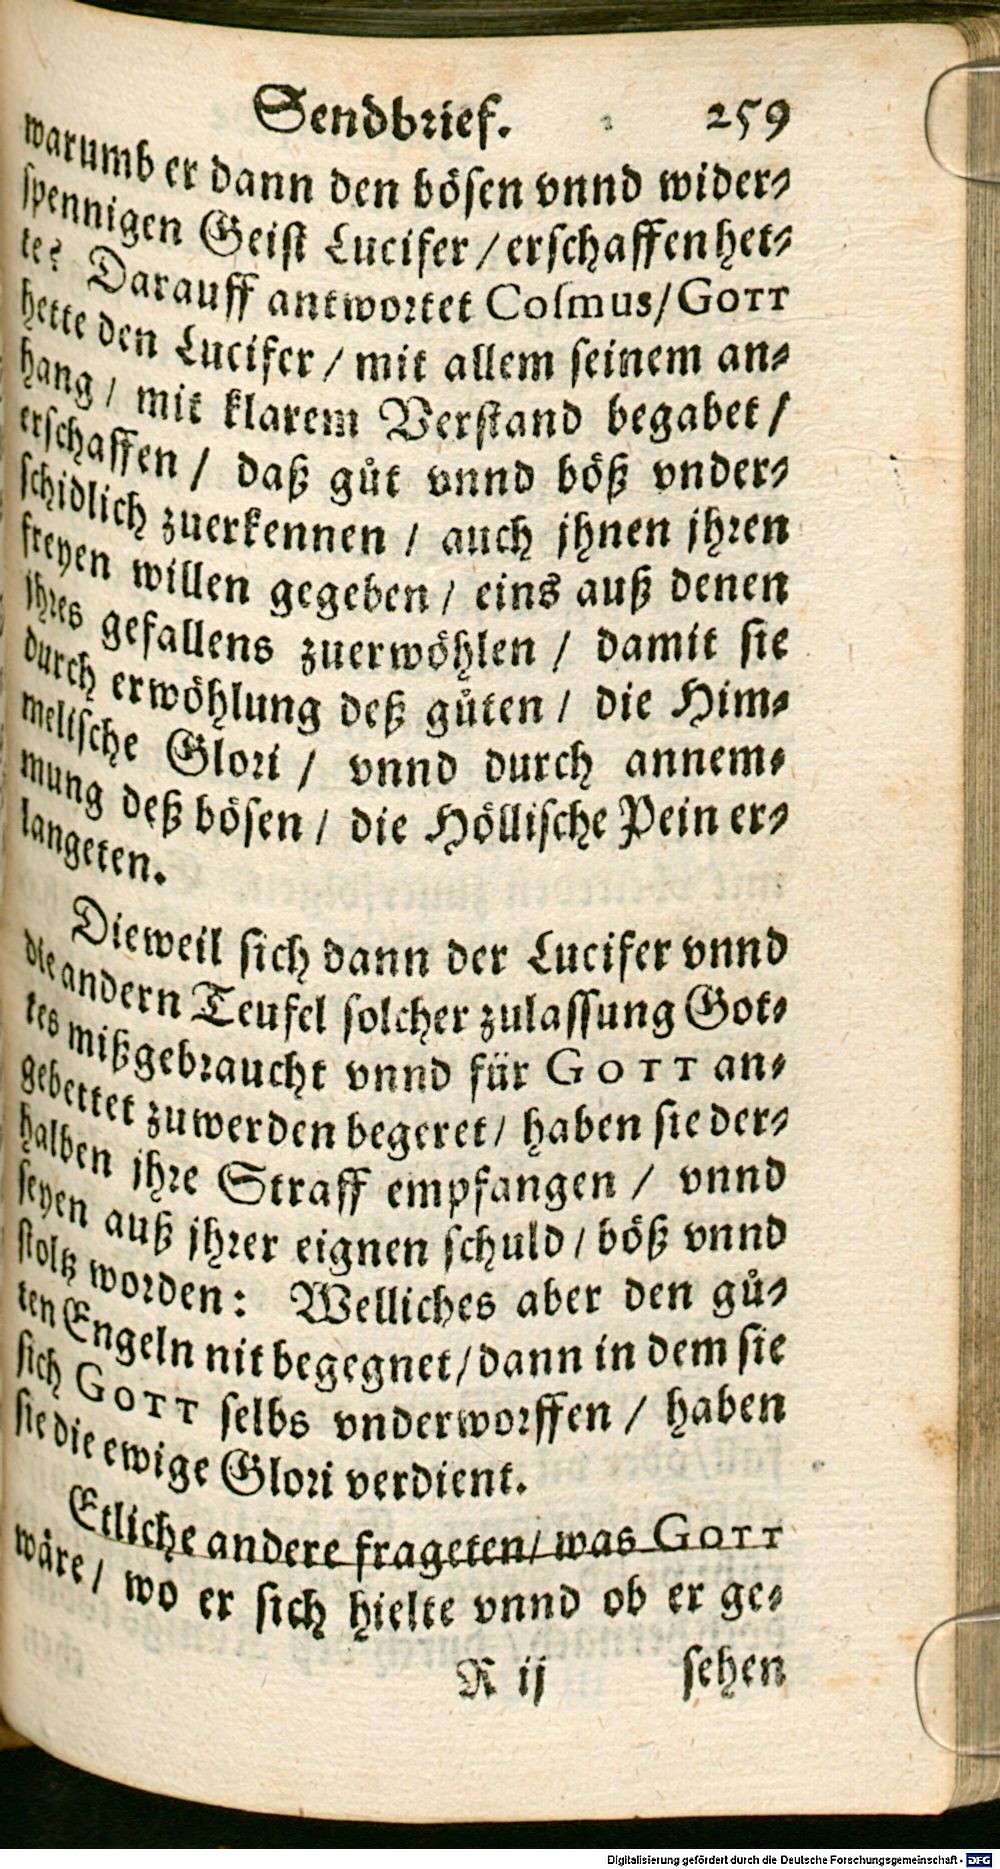 Sendbrief. 259
warumb er dann den bösen vnnd wider⸗
spennigen Geist Lucifer / erschaffen het⸗
te? Darauff antwortet Cosmus / GOTT
hette den Lucifer / mit allem seinem an⸗
hang / mit klarem Verstand begabet /
erschaffen / daß gůt vnnd böß vnder⸗
schidlich zuerkennen / auch jhnen jhren
freyen willen gegeben / eins auß denen
jhres gefallens zuerwöhlen / damit sie
durch erwöhlung deß gůten / die Him⸗
melische Glori / vnnd durch annem⸗
mung deß bösen / die Höllische Pein er⸗
langeten.
Dieweil sich dann der Lucifer vnnd
die andern Teufel solcher zulassung Got⸗
tes mißgebraucht vnnd für GOTT an⸗
gebettet zuwerden begeret / haben sie der⸗
halben jhre Straff empfangen / vnnd
seyen auß jhrer eignen schuld / böß vnnd
stoltz worden: Welliches aber den gů⸗
ten Engeln nit begegnet / dann in dem sie
sich GOTT selbs vnderworffen / haben
sie die ewige Glori verdient.
Etliche andere frageten / was GOTT
wåre / wo er sich hielte vnnd ob er ge⸗
R ij sehen
Digitalisierung gefördert durch die Deutsche Forschungsgemeinschaft - DFG